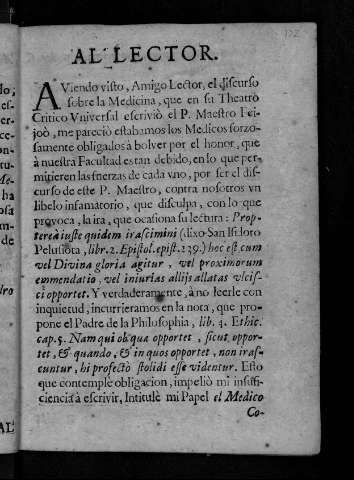 AL LECTOR.
AViendo visto, Amigo Lector, el discurso
sobre la Medicina, que en su Theatrò
Critico Vniversal escriviò el P. Maestro Fei-
joò, me pareciò estabamos los Medicos forzo-
samente obligados à bolver por el honor, que
à nuestra Facultad es tan debido, en lo que per-
mitieren las fuerzas de cada vno, por ser el dis-
curso de este P. Maestro, contra nosotros vn
libelo infamatorio, que disculpa, con lo que
provoca, la ira, que ocasiona su lectura: Prop-
tereà iuste quidem irascimini (dixo San Isidoro
Pelusiota, libr. 2. Epistol. epist. 239.) hoc est cum
vel Divina gloria agitur, vel proximorum
emmendatio, vel iniurias allijs allatas vlcis-
ci oportet. Y verdaderamente, à no leerle con
inquietud, incurrieramos en la nota, que pro-
pone el Padre de la Philosophia, lib. 4. Ethic.
cap. 5. Nam qui ob qua opportet, sicut oppor-
tet, & quando, & in quos opportet, non iras-
cuntur, hi profectò stolidi esse videntur. Esto
que contemplè obligacion, impeliò mi insufi-
ciencia à escrivir, Intitulè mi Papel el Medico
Co-